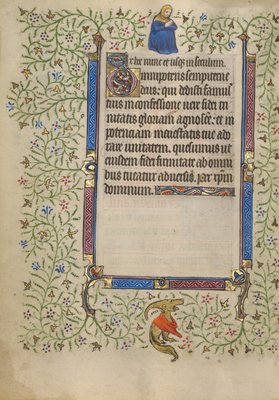 ex hoc nunc et usq; in seculum.
Omnipotens sempiterne
deus: qui dedisti famulis
tuis in confessione vere fidei e
ternitatis gloriam agnoscere: et in
potencia maiestatis tue ado
rare unitatem. quesumus ut
eiusdem fidei firmitate ab omni
bus tueatur adversis. per xpm
dominum.